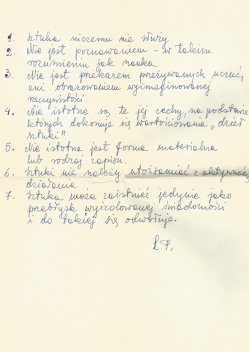 1. Sztuka niczemu nie służy.
2. Nie jest poznawaniem - w takim
rozumieniu jak nauka.
3. Nie jest przekazem przeżywanych uczuć,
ani obrazowaniem wyimaginowanej
rzeczywistości.
4. Nie istotne są te jej cechy, na podstawie
których dokonuje się wartościowania „dzieł
sztuki"
5. Nie istotna jest forma materialna
lub rodzaj zapisu.
6. Sztuki nie należy utożsamiać z aktywnością
działania
7. Sztuka może zaistnieć jedynie jako
przebłysk wyizolowanej świadomości
i do takiej się odwołuje.